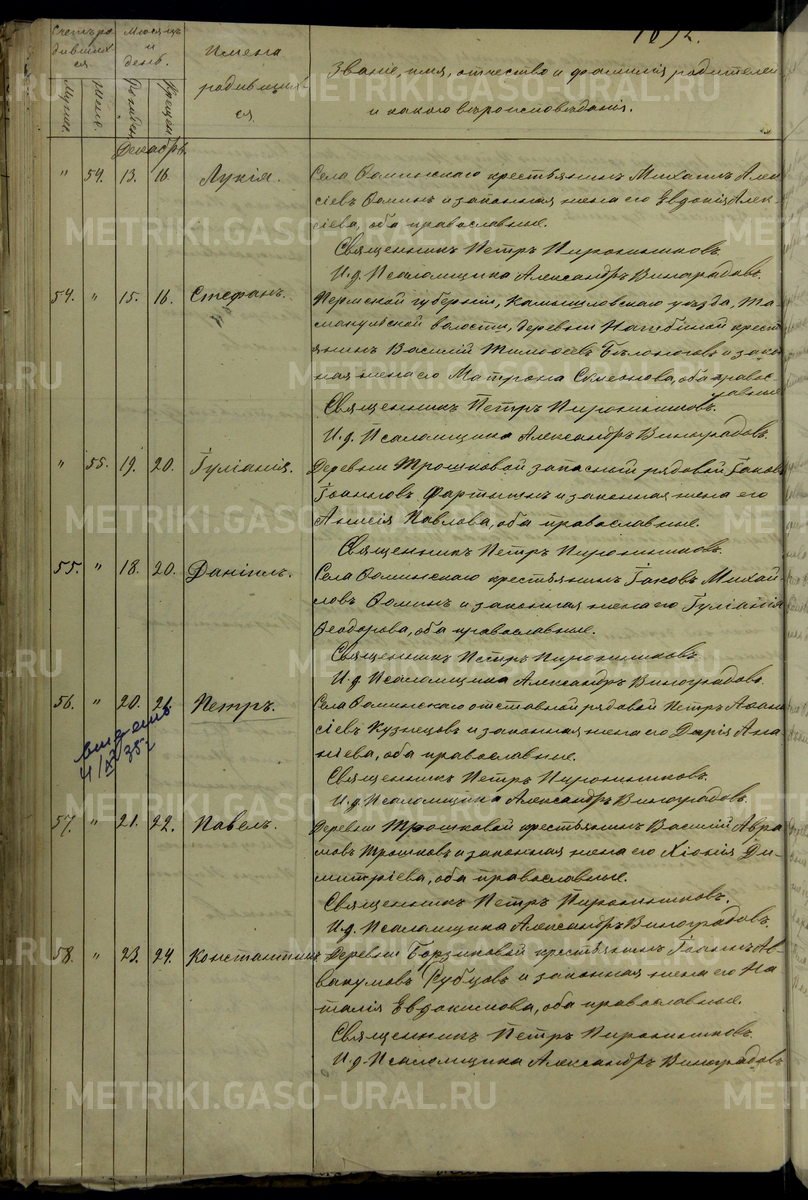 1892.
Счетъ ро-
дивших-
ся
Мѣсяцъ
и
день.
Имена
родивших-
ся
Званіе, имя, отчество и фамилія родителей
и какого вѣроисповѣданія.
Мужеск.
женс.
Рожден.
Крещен.
Декабрь
" 54. 13. 16 Лукія. Села Ѳоминскаго крестьянинъ Михаилъ Алек-
сіевъ Ѳоминъ и законная жена его Евдокія Алек-
сіева, оба православные.
Священникъ Петръ Пироженниковъ
И.д. Псаломщика Александръ Виноградовъ.
54. " 15. 16. Стефанъ. Пермской губерніи, Камышловскаго уѣзда, Та-
макульской волости, деревни Нагибиной крест-
янинъ Василій Тимоѳеевъ Бѣлоноговъ и закон-
ная жена его Матрона Симеонова, оба правос-
лавные
Священникъ Петръ
И.д. Псаломщика Александръ Виноградовъ.
" 55. 19. 20. Іуліанія. Деревни Трошковой запасный рядовой Іаковъ
Іоанновъ и законная жена его
Анисія Павлова, оба православные.
Священникъ Петръ
55. " 18. 20. Даніилъ. Села Ѳоминскаго крестьянинъ Іаковъ Михай-
ловъ Ѳоминъ и законная жена его Іуліанія
Ѳеодорова, оба православные.
Священникъ Петръ
И.д. Псаломщика Александръ Виноградовъ.
56. " 20. 21. Петръ. Села Ѳоминскаго отставной рядовой Петръ Аѳана-
сіевъ Кузнецовъ и законная жена его Дарія Ана-
ніева, оба православные.
4/XI 35 г
Священникъ Петръ
И.д. Псаломщика Александръ Виноградовъ.
57. " 21. 22. Павелъ. Деревни Трошковой крестьянинъ Василій Авра-
мовъ Трошковъ и законная жена его Хіонія Ди-
митріева, оба православные.
Священникъ Петръ
И.д. Псаломщика Александръ Виноградовъ.
58. " 23. 24. Константинъ Деревни Борзиковой крестьянинъ Іоаннъ Ав-
вакумовъ Рубцовъ и законная жена его На-
талія Евдокимова, оба православные.
Священникъ Петръ
И.д. Псаломщика Александръ Виноградовъ
METRIKI.GASO-URAL.RU